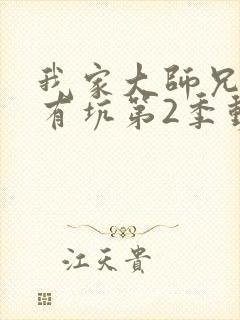 我家大師兄
有坑第2季動
江天貴